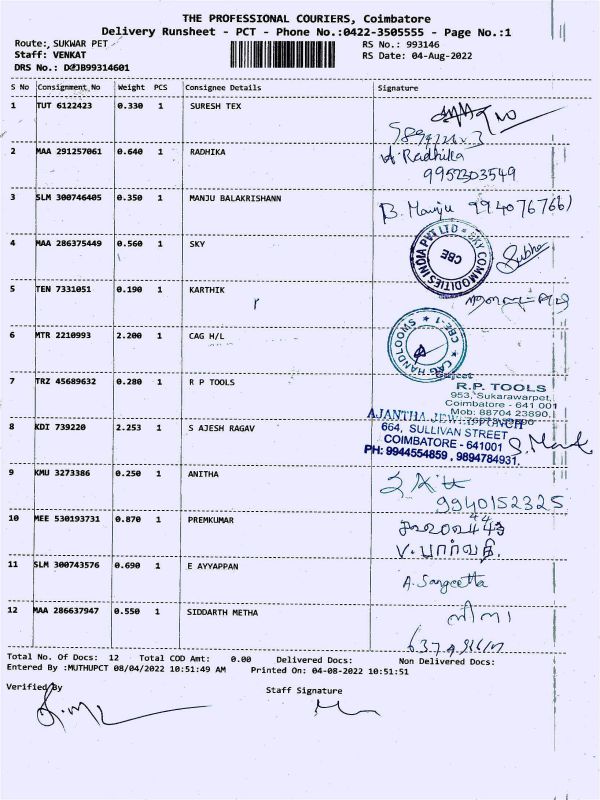 THE PROFESSIONAL COURIERS, Coimbatore
Delivery Runsheet - PCT - Phone No.:0422-3505555 - Page No.:1
Route:, SUKWAR PET RS No.: 993146
Staff: VENKAT RS Date: 04-Aug-2022
DRS No.:
S No Consignment No Weight PCS Consignee Details Signature
1 TUT 6122423 0.330 1 SURESH TEX
2 MAA 291257061 0.640 1 RADHIKA A. Radhika
9952303549
3 SLM 300746405 0.350 1 MANJU BALAKRISHANN B. Manju 9940767661
4 MAA 286375449 0.560 1 SKY SKY COMMODITIES INDIA PVT LTD CBE Subha
5 TEN 7331051 0.190 1 KARTHIK
6 MTR 2210993 2.200 1 CAG H/L CAG HANDLOOMS CBE-1
7 TRZ 45689632 0.280 1 R P TOOLS R.P. TOOLS
953, Sukarawarpet,
Coimbatore - 641 001
Mob: 88704 23890,
8 KDI 739220 2.253 1 S AJESH RAGAV AJANTHA
664, SULLIVAN STREET
COIMBATORE - 641001
PH: 9944554859, 9894784931.
9 KMU 3273386 0.250 1 ANITHA
9940152325
10 MEE 530193731 0.870 1 PREMKUMAR
V. பார்வதி.
11 SLM 300743576 0.690 1 E AYYAPPAN A. Sangeetta
12 MAA 286637947 0.550 1 SIDDARTH METHA லீலா
Total No. Of Docs: 12 Total COD Amt: 0.00 Delivered Docs: Non Delivered Docs:
Entered By :MUTHUPCT 08/04/2022 10:51:49 AM Printed On: 04-08-2022 10:51:51
Verified By Staff Signature